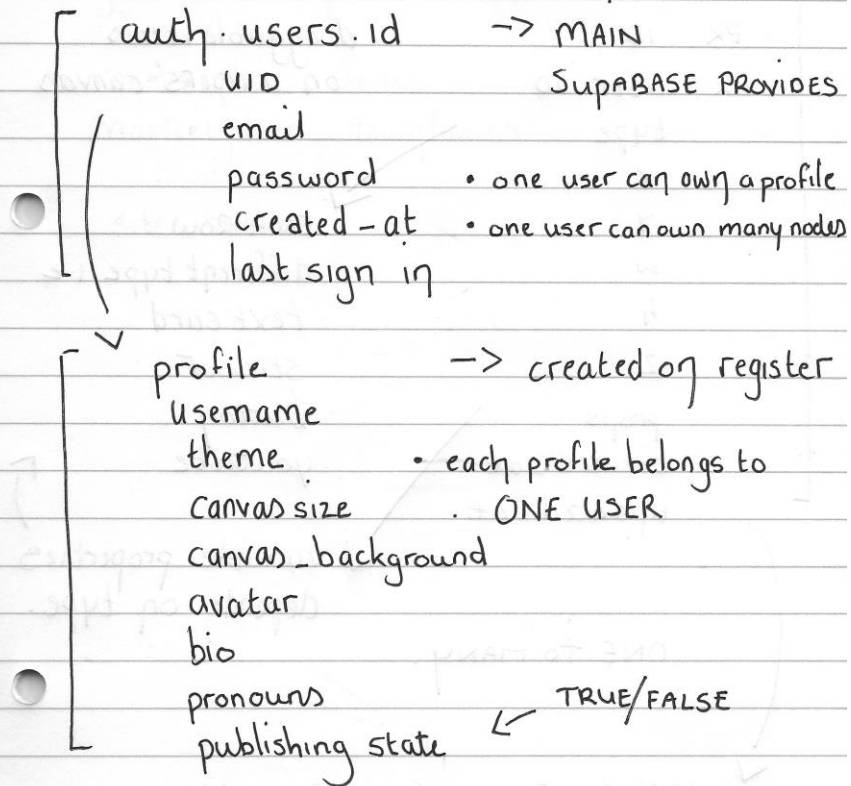 auth.users.id -> MAIN
UID SUPABASE PROVIDES
email
password • one user can own a profile
created-at • one user can own many nodes
last sign in
profile -> created on register
username
theme • each profile belongs to
canvas size . ONE USER
canvas_background
avatar
bio
pronouns TRUE/FALSE
publishing state